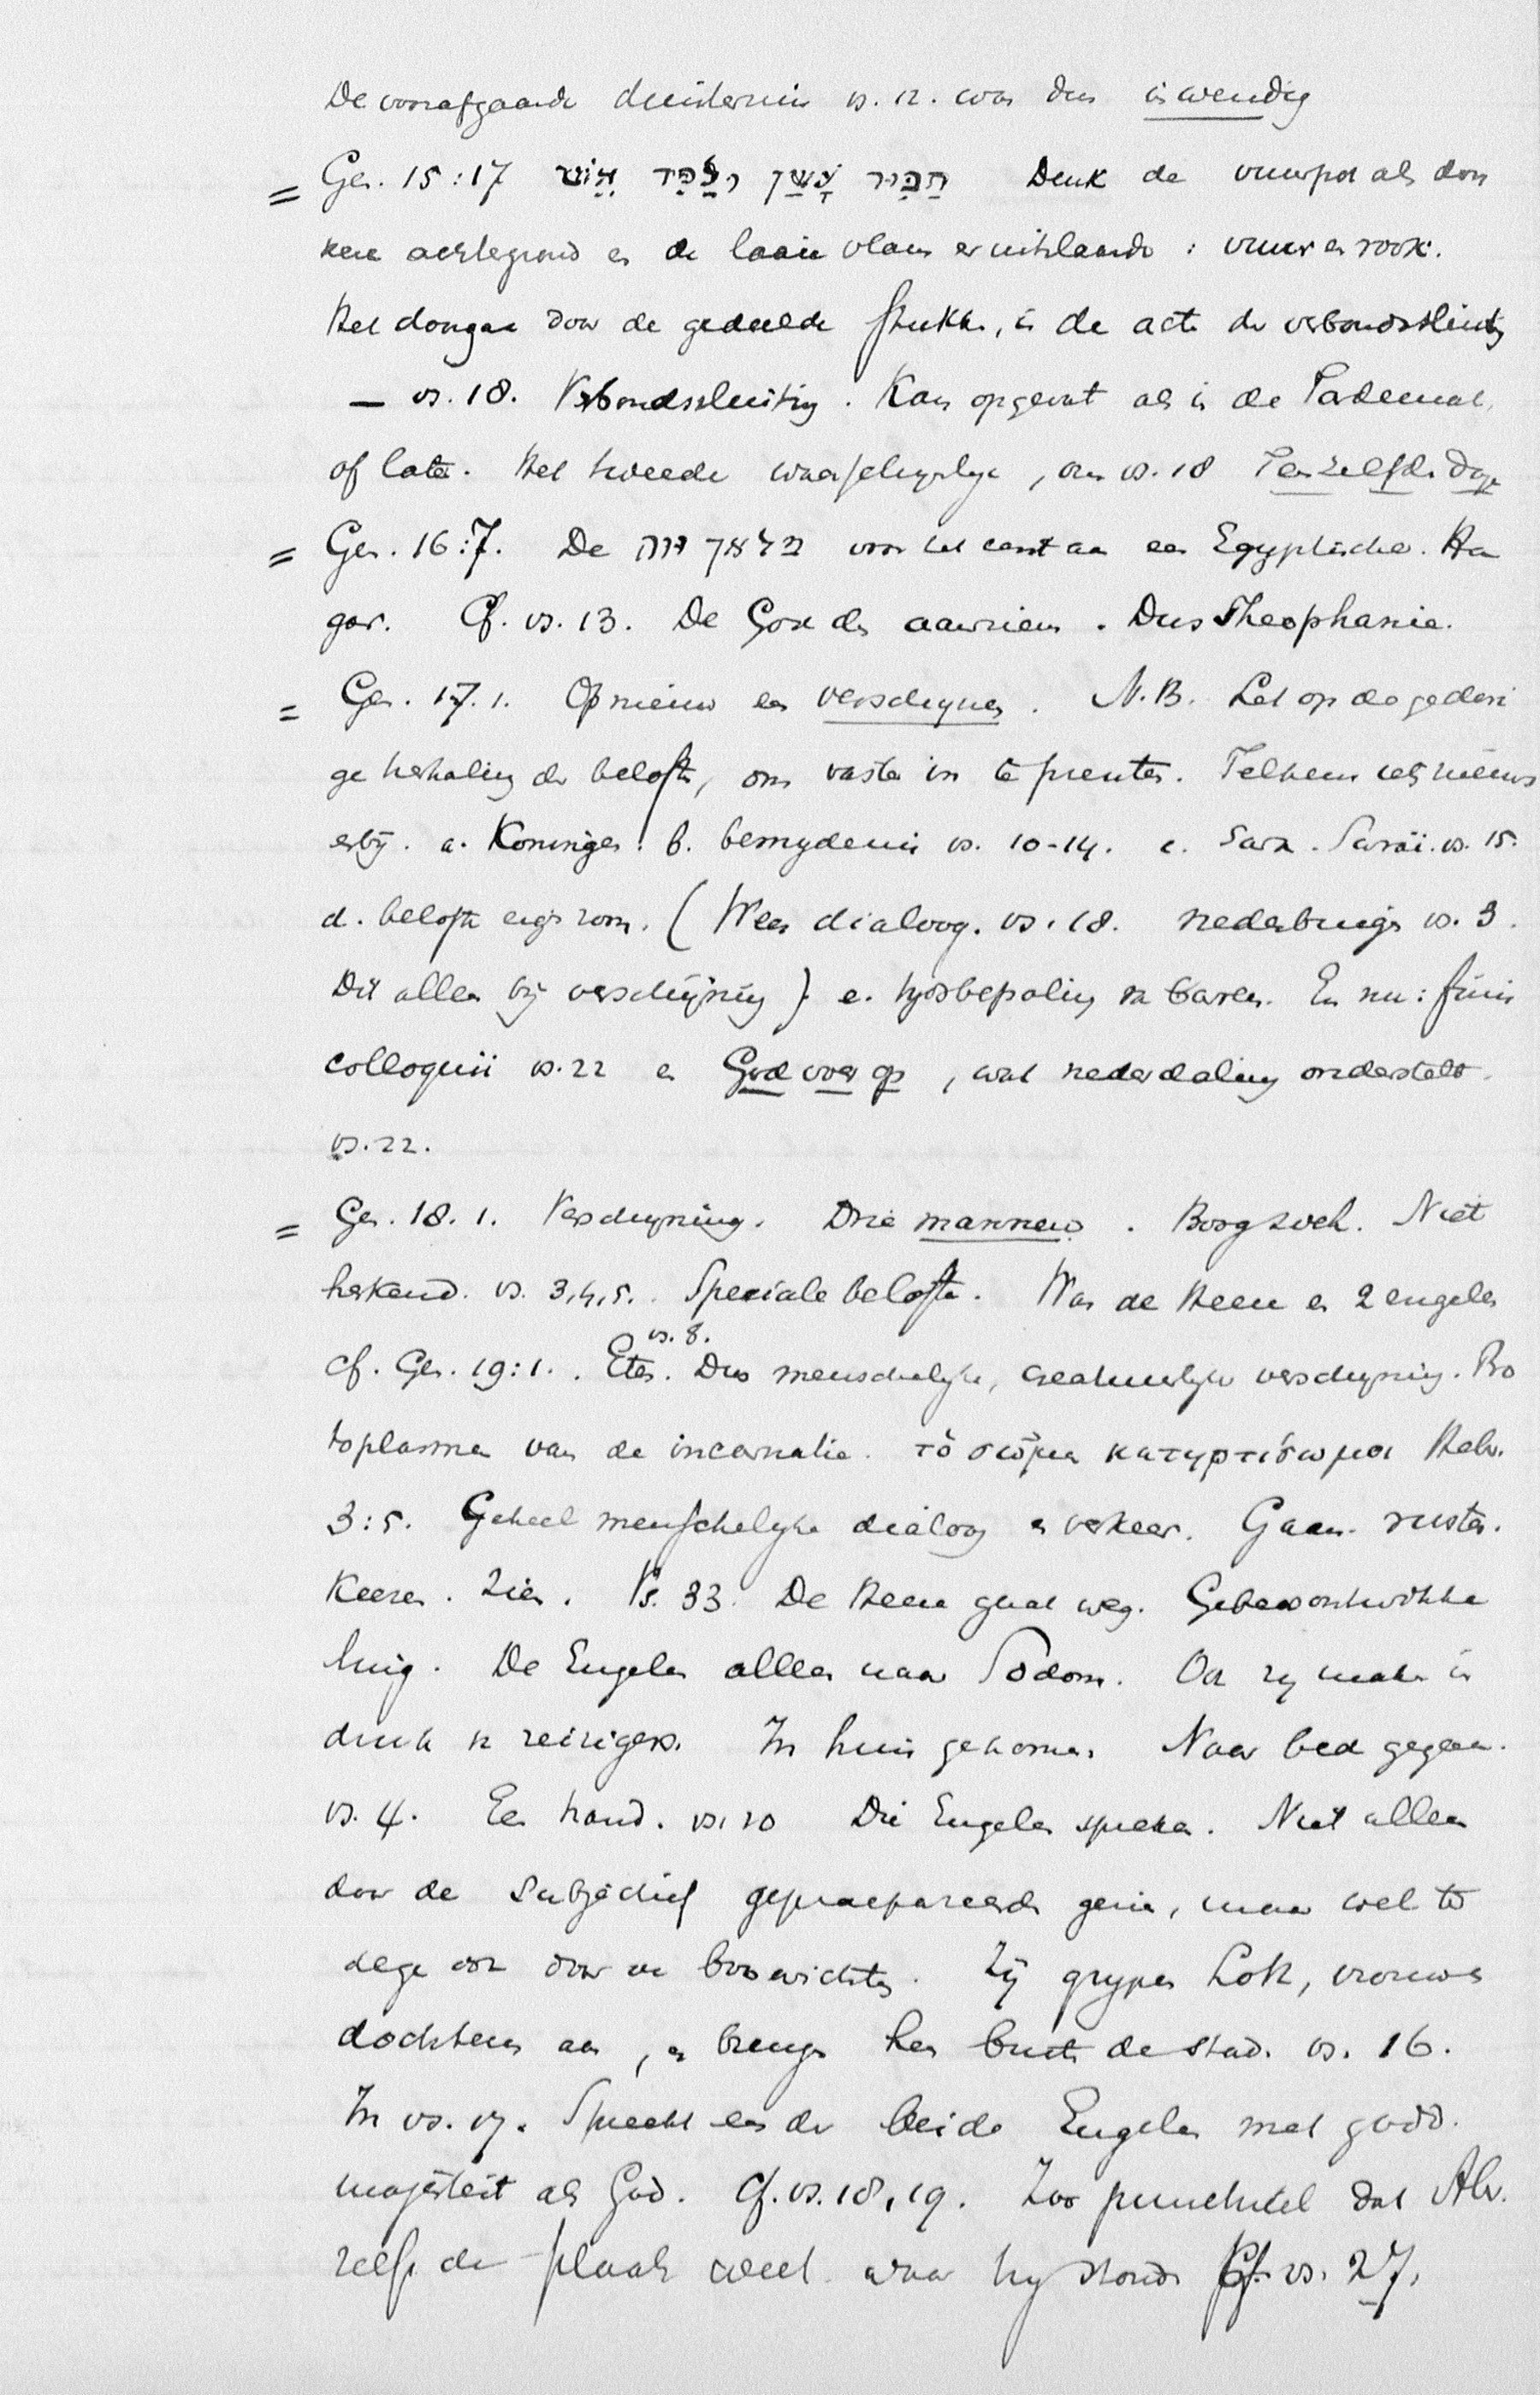 De voorafgaande duisternis vs. 12. was dus inwendig
= Gen. 15:17 תַנּוּר עָשָׁן וְלַפִּיד אֵשׁ Denk de vuurpot als don
kere achtergrond en de laaie vlam er uitslaande : vuur en rook.
Het doorgaan door de gedeelde stukken, is de acte der verbondssluiting
— vs. 18. Verbondssluiting. Kan opgevat als in de Tardemah,
of later. Het tweede waarschynlyk, om vs. 18 Ten zelfden dage
= Gen. 16:7. De מלאך יהוה voor het eerst aan een Egyptische. Ha
gar. Cf. vs. 13. De God des aanziens. Dus Theophanie.
= Gen. 17.1. Opnieuw een verschynen. N.B. Let op de geduri
ge herhaling der belofte, om vaster in te prenten. Telkens iets nieuws
erbij. a. Koningen. b. besnydenis vs. 10-14. c. Sara. Saraï. vs. 15.
d. belofte eigen zoon. (Weer dialoog. vs. 18. nederbuigen vs. 3.
Dit alleen bij verschijning) e. tydsbepaling v. baren. En nu: finis
colloquii vs. 22 en God voer op, wat nederdaling onderstelt.
vs. 22.
= Gen. 18.1. Verschyning. Drie mannen. Boog zich. Niet
herkend. vs. 3,4,5. Speciale belofte. Was de Heere en 2 engelen
cf. Gen. 19:1. Eten. vs. 8. Dus menschelyke, creatuurlyke verschyning. Pro
toplasma van de incarnatie. τὸ σῶμα κατηρτίσω μοι Hebr.
3:5. Geheel menschelyke dialoog en verkeer. Gaan. rusten.
Keeren. Zien. Vs. 33. De Heere gaat weg. Gebedsontwikke
ling. De Engelen alleen naar Sodom. Ook zy maken in
druk v. reizigers. In huis gekomen. Naar bed gegaan.
vs. 4. Een hand. vs. 10 Die Engelen spreken. Niet alleen
door de subjectief gepraepareerde gezien, maar wel te
dege ook door de booswichten. Zij grypen Loth, vrouw en
dochters aan, en brengen hen buiten de stad. vs. 16.
In vs. 17. Spreekt een der beide Engelen met godd.
majesteit als God. Cf. vs. 18, 19. Zoo punctueel dat Abr.
zelfs de plaats weet waar hy stond. Cf. vs. 27.